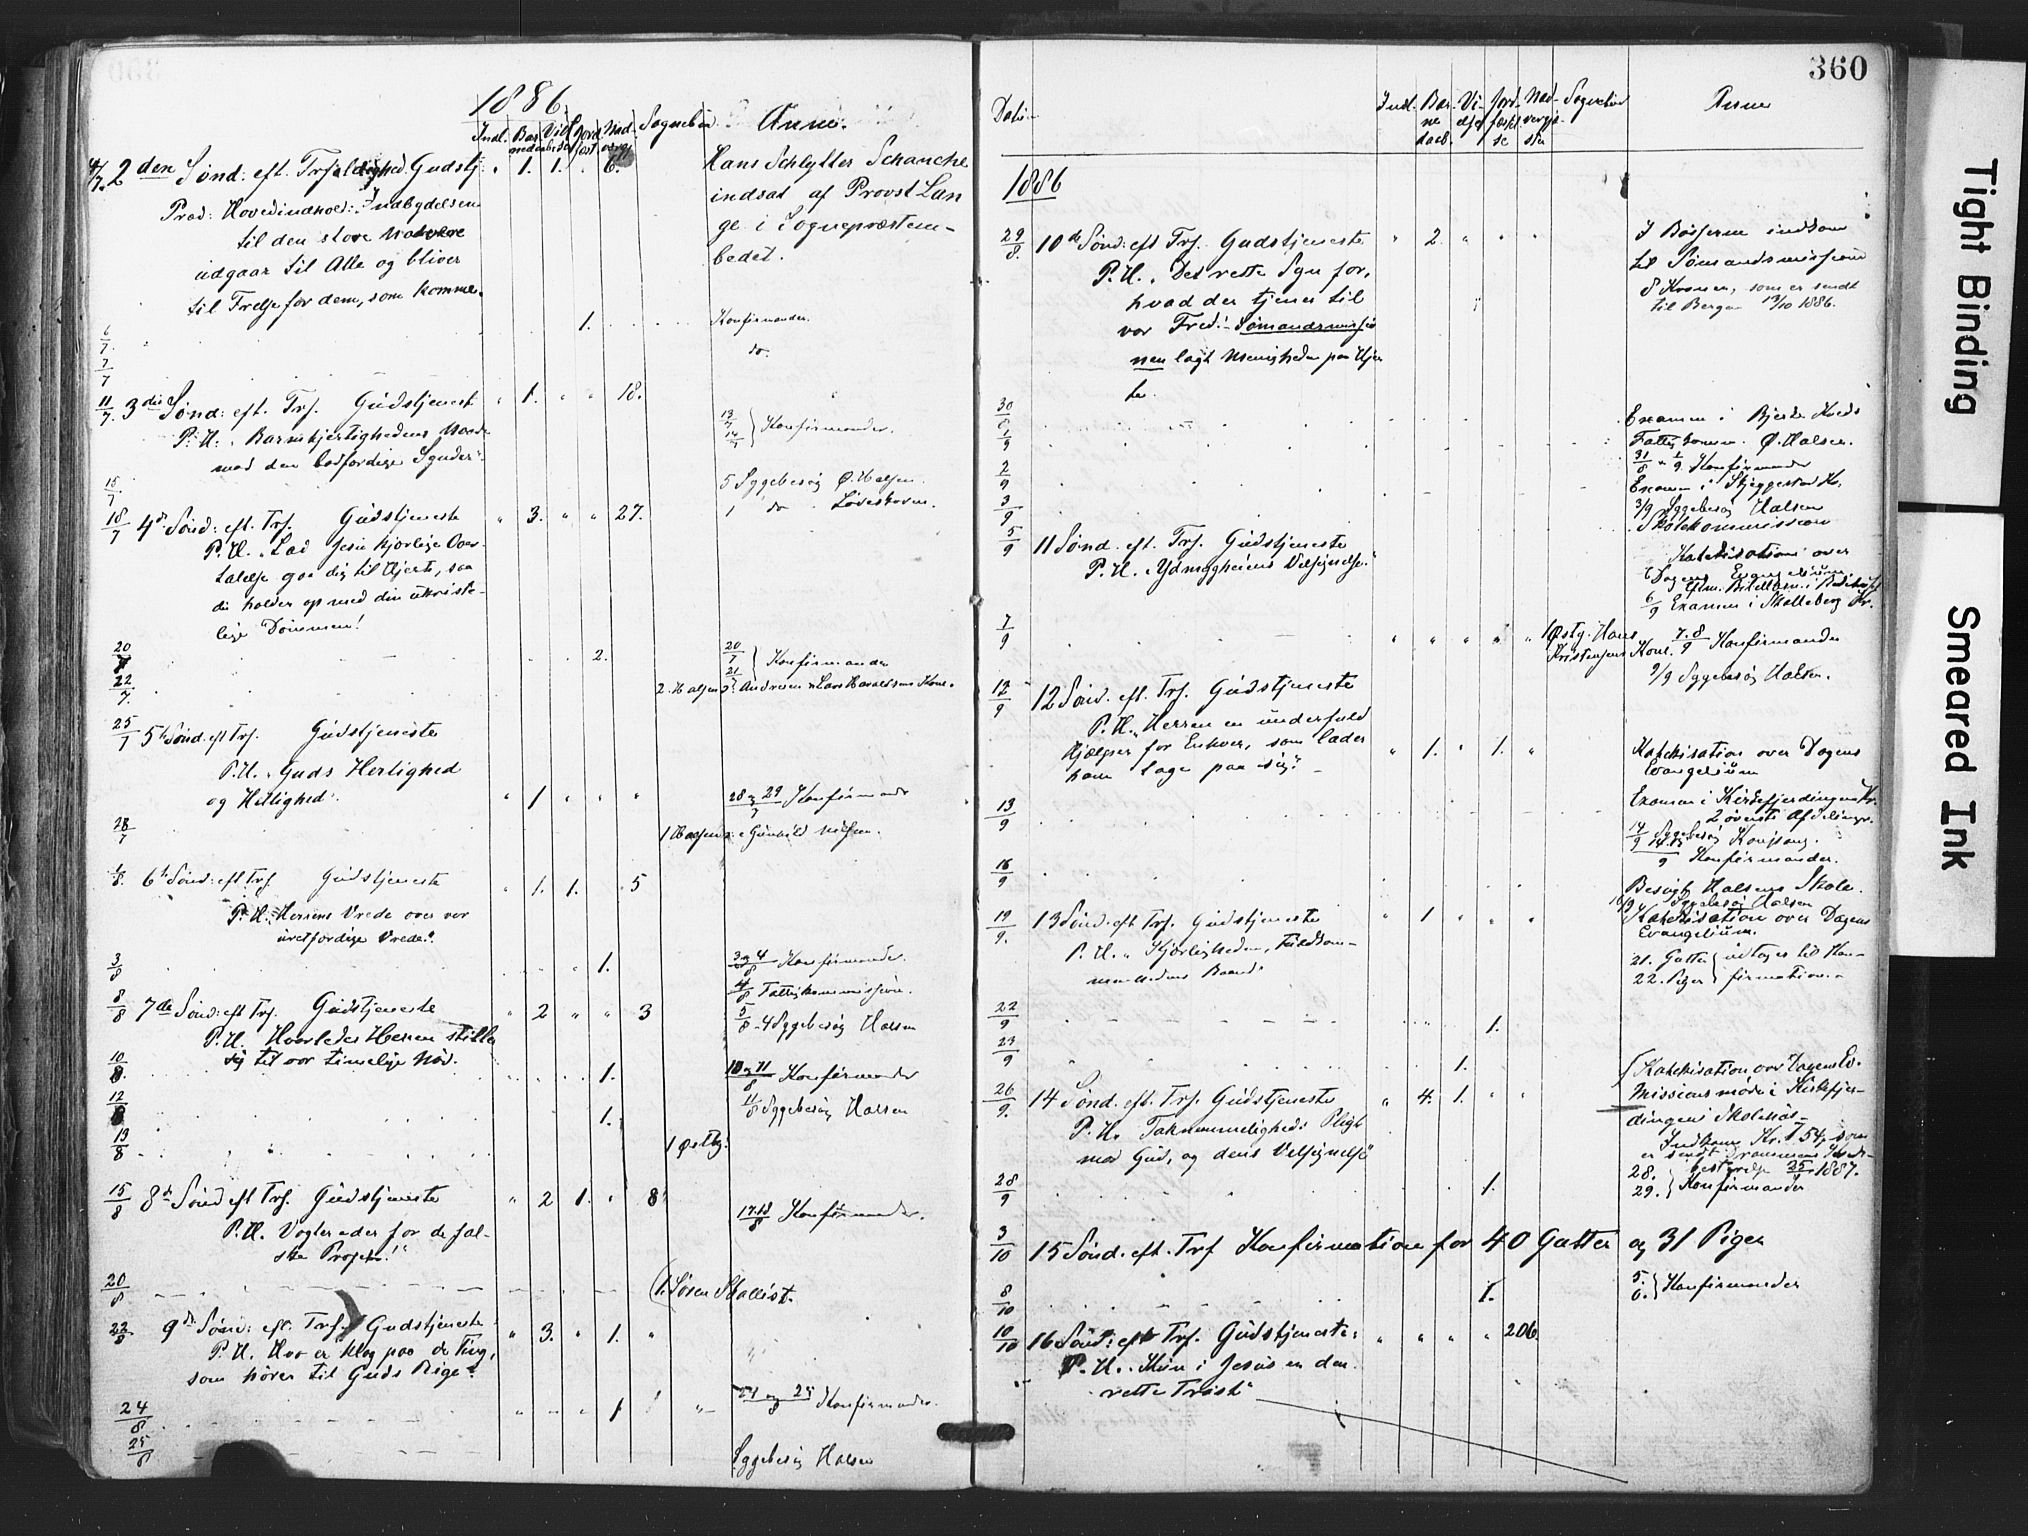 1886
Indl. Bar Viel Jord Nad Sognebud Anm.
4/7. 2den Sønd: eft. Trefoldighed. Gudstj: " 1. 1. . 6. Hans Schlytter Schanche
Præd: Hovedindhold: Indbydelsen indsat af Provst Lan
til den store Nadvere ge i Sognepræstem-
udgaar til Alle og bliver bedet.
til Frelse for dem, som komme.
6/7. 1. Konfirmander.
7/7 do.
11/7. 3die Sønd: eft. Trf. Gudstjeneste " 1. " " 18.
P. H. Barmhjertighedens
mod den bodfærdige Synder".
13/7 14/7 } Konfirmander.
15/7 5 Sygebesøg Ø. Halsen
1 do Løveskoven.
18/7 4de Sønd: eft. Trf. Gudstjeneste " 3. " " 27.
P. H. "Lad Jesu kjærlige Over-
talelse gaa dig til Hjerte, saa
du holder op med din ukriste-
lige Dømmen!
20/7 2. 20/7 21 } Konfirmander
22/7. 2. Halsen Andresen Lars Haraldsens Kone.
25/7 5te Sønd. eft Trf. Gudstjeneste
P. H. "Guds Herlighed
og Hellighed". " 1 " " " 28 og 29/7 Konfirmander
28/7 1 Halsen Gunhild Nilsen.
1/8. 6te Sønd: eft Trf. Gudstjeneste " 1. 1. " 5
P. H. Herrens Vrede over vor
uretfærdige Vrede".
3/8 1. 3 og 4/8 Konfirmander.
4/8 Fattigkommission.
8/8 7de Sønd: eft Trf. Gudstjeneste " 2 " " 3 5/8 - 4 Sygebesøg Halsen
P. H. Hvorledes Herren stiller
sig til vor timelige Nød.
10/8. 1. 10 og 11/8 Konfirmander
12/8 1. 11/8 Sygebesøg Halsen
13/8 1 Østby.
15/8 8de Sønd eft Trf. Gudstjeneste " 2 1. " 8 17.18/8 Konfirmander.
P. H. Vogter eder for de fal-
ske Profeter!"
20/8 1. Søren Skallist.
22/8 9de Sønd: eft. Trf. Gudstjeneste " 3. " 1. "
P. H. Hvo er klog paa de Ting,
som hører til Guds Rige?
24/8 " " " 1 24 og 25/8 Konfirmander.
25/8 Sygebesøg Halsen
360
Datum Indl. Bar- Vi- Jord- Nad- Sognebud Anm
ne else fæstel- vergje-
daab. se ster
1886
29/8. 10de Sønd: eft Trf. Gudstjeneste " 2. " " " I Bøsserne indkom
P. H. "Det rette Syn for, til Sømandsmissionen
hvad der tjener til 8 Kroner, som er sendt
vor Fred". Sømandsmissio til Bergen 13/10 1886.
nen lagt Menigheden paa Hjer
te.
30/8 Examen i Bjerke Kreds
1/9 Fattigkomm. Ø. Halsen.
31/8 og 1/9 Konfirmander
2/9 Examen i Skjeggestad Kr.
3/9 3/9 Sygebesøg Halsen
Skolekommission
5/9 11 Sønd. eft. Trf. Gudstjeneste Katekisation over
P. H. "Ydmyghedens Velsignelse". Dagens Evangelium.
6/9 Examen i Skalleberg Kr.
7/9 " " " " " 1 Østby. Hans Kristensens Kone. 7.8/9 Konfirmander
9/9 Sygebesøg Halsen.
12/9 12 Sønd. eft. Trf. Gudstjeneste
P. H. "Herren en underfuld
Hjælper for Enhver, som lader " 1. " 1. " Katekisation over Dagens
ham tage paa sig". Evangelium
13/9 Examen i Kirkefjerdingens Kr.
2 øverste Afdelinger.
14/9 Sygebesøg
14.15/9 Konfirmander.
16/9 Besøgt Halsens Skole.
Sygebesøg Halsen
19/9. 13 Sønd. eft Trf. Gudstjeneste " 1 " " " Katekisation over Dagens
P. H. "Kjærligheden, Fuldkom- Evangelium.
menhedens Baand". 21. Gutter } udtages til Kon-
22. Piger } firmation.
22/9 1.
23/9 1. Katekisation over Dagens Ev.
26/9. 14 Sønd. eft. Trf. Gudstjeneste " 4. 1. " " Missionsmøde i Kirkefjer-
P. H. Taknemmelighedens Pligt dingens Skolehus-
mod Gud, og dens Velsignelse" Indkom Kr. 7 54, som
er sendt Drammens Kreds-
bestyrelse 1887.
28/9 1. 28. 29. } Konfirmander
3/10 15 Sønd. eft. Trf Konfirmation for 40 Gutter og 31 Piger
8/10 1. 5. 6. } Konfirmander
10/10 16 Sønd: eft Trf. Gudstjeneste. " " " " 206.
P. H. "Kun i Jesus er den
rette Trøst"
Tight Binding
Smeared Ink